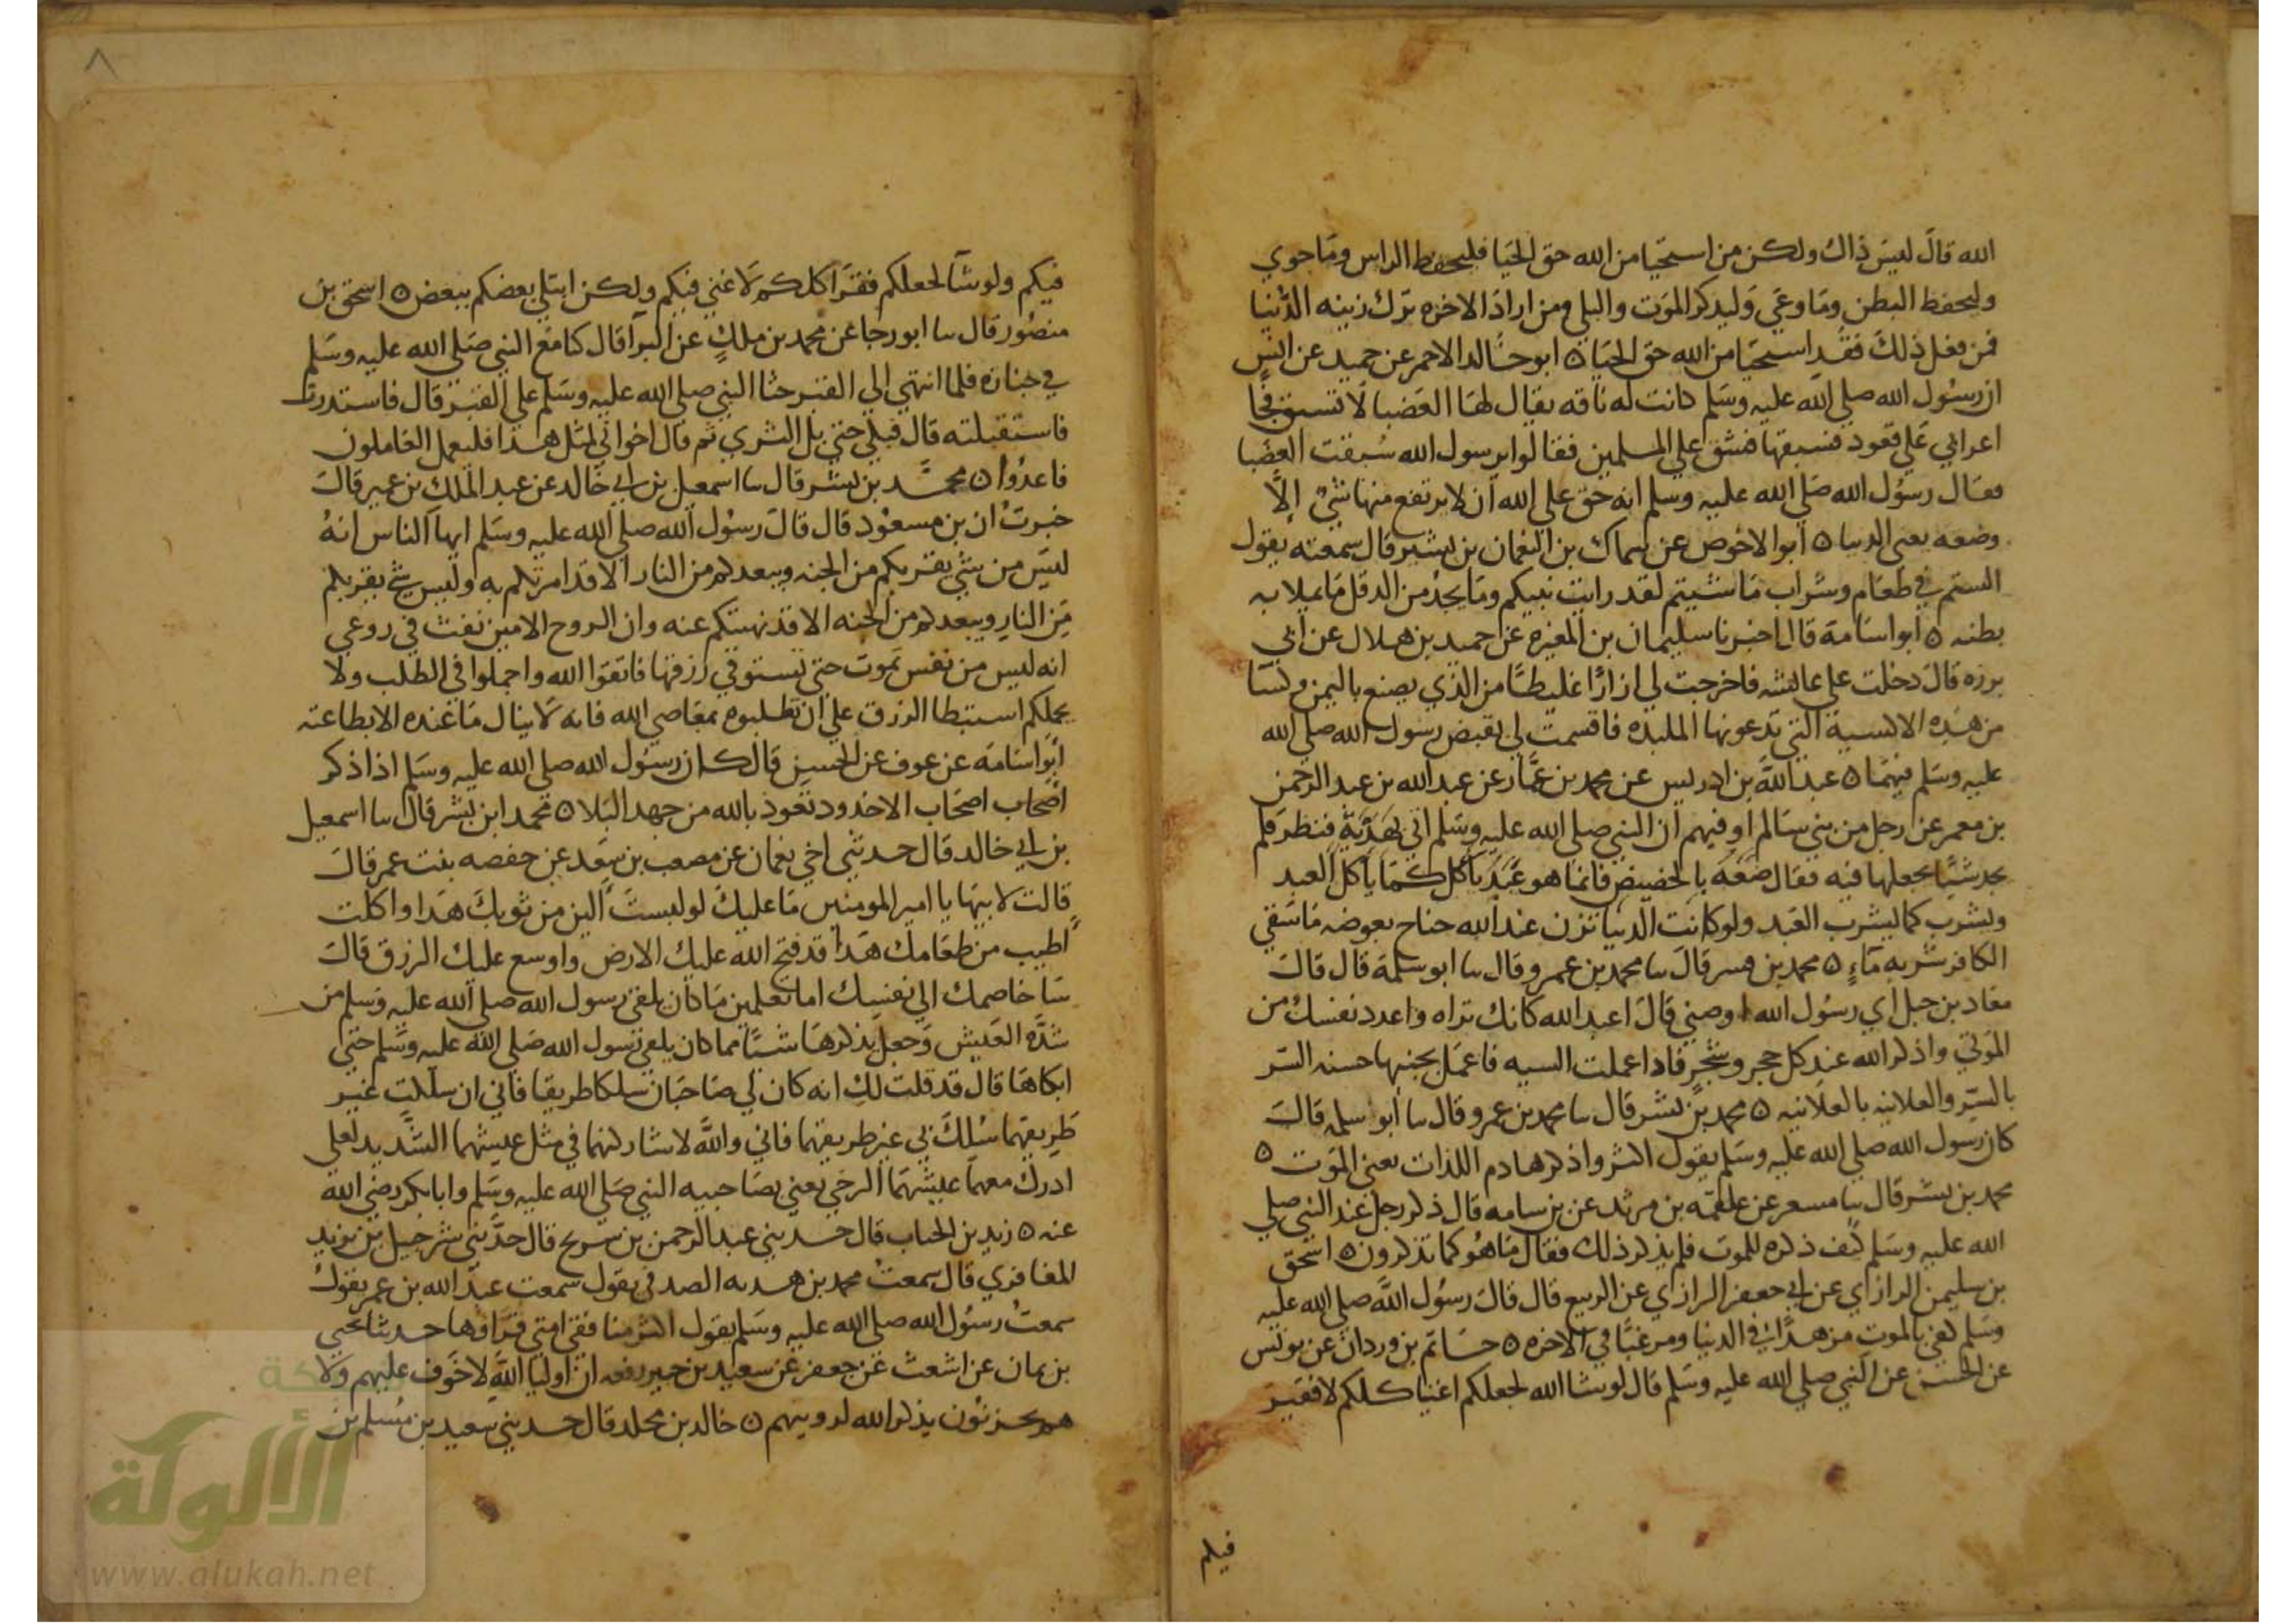 الله قال ليس ذاك ولكن من استحيا من الله حق الحيا فليحفظ الراس وما حوي
وليحفظ البطن وما وعي وليذكر الموت والبلي ومن اراد الاخره ترك زينه الدنيا
فمن فعل ذلك فقد استحيا من الله حق الحيا ٥ ابو خالد الاحمر عن حميد عن انس
ان رسول الله صلي الله عليه وسلم كانت له ناقه يقال لها العضبا لا تسبق فجا
اعرابي علي قعود فسبقها فشق علي المسلمين فقالوا يرسول الله سبقت العضبا
فقال رسول الله صلي الله عليه وسلم انه حق علي الله ان لا يرتفع منها شي الا
وضعه يعني الدنيا ٥ ابو الاحوص عن سماك بن النعمان بن بشير قال سمعته يقول
الستم في طعام وشراب ما شيتم لقد رايت نبيكم وما يجد من الدقل ما يملا به
بطنه ٥ ابو اسامة قال اخبرنا سليمان بن المغيره عن حميد بن هلال عن ابي
برده قال دخلت علي عايشه فاخرجت لي ازارا غليظا من الذي يصنع باليمن وكسا
من هذه الاكسية التي تدعونها الملبده فاقسمت لي لقبض رسول الله صلي الله
عليه وسلم فيهما ٥ عبد الله بن ادريس عن محمد بن عمار عن عبد الله بن عبد الرحمن
بن معمر عن رجل من بني سالم او فيهم ان النبي صلي الله عليه وسلم اتي بهدية فنظر فلم
يجد شيا يجعلها فيه فقال ضعه بالحضيض فانما هو عبد ياكل كما ياكل العبد
ويشرب كما يشرب العبد ولو كانت الدنيا تزن عند الله جناح بعوضه ما سقي
الكافر شربه ماء ٥ محمد بن بشر قال سا محمد بن عمرو قال سا ابو سلمة قال قال
معاد بن جبل اي رسول الله اوصني قال اعبد الله كانك تراه واعدد نفسك من
الموتي واذكر الله عند كل حجر وشجر فاذا عملت السيه فاعمل بجنبها حسنه السر
بالسر والعلانيه بالعلانيه ٥ محمد بن بشر قال سا محمد بن عمرو قال سا ابو سلمه قال
كان رسول الله صلي الله عليه وسلم يقول اكثروا ذكر هادم اللذات يعني الموت ٥
محمد بن بشر قال سا مسعر عن علقمه بن مرثد عن بن سامه قال ذكر رجل عند النبي صلي
الله عليه وسلم كيف ذكره للموت فلم يذكر ذلك فقال ما هو كما تذكرون ٥ اسحق
بن سليمن الرازاي عن ابي جعفر الرازي عن الربيع قال قال رسول الله صلي الله عليه
وسلم كفي بالموت مزهدا في الدنيا ومرغبا في الاخره ٥ حاتم بن وردان عن يونس
عن الحسن عن النبي صلي الله عليه وسلم قال لو شا الله لجعلكم اغنيا كلكم لا فقير
فيكم
٨
فيكم ولو شا لجعلكم فقرا كلكم لا غني فيكم ولكن ابتلي بعضكم ببعض ٥ اسحق بن
منصور قال سا ابو رجا عن محمد بن ملك عن البرا قال كنا مع النبي صلي الله عليه وسلم
في جنازه فلما انتهي الي القبر جثا النبي صلي الله عليه وسلم علي القبر قال فاستدرت
فاستقبلته قال فبكي حتي بل الثري ثم قال اخواني لمثل هذا فليعمل العاملون
فاعدوا ٥ محمد بن بشر قال سا اسمعيل بن ابي خالد عن عبد الملك بن عمير قال
خبرت ان بن مسعود قال قال رسول الله صلي الله عليه وسلم ايها الناس انه
ليس من شي يقربكم من الجنه ويبعدكم من النار الا قد امرتكم به وليس شي يقربكم
من النار ويبعدكم من الجنه الا قد نهيتكم عنه وان الروح الامين نفث في روعي
انه ليس من نفس تموت حتي تستوفي رزقها فاتقوا الله واجملوا في الطلب ولا
يحملكم استبطا الرزق علي ان تطلبوه بمعاصي الله فانه لا ينال ما عنده الا بطاعته
ابو اسامة عن عوف عن الحسن قال كان رسول الله صلي الله عليه وسلم اذا ذكر
اصحاب اصحاب الاخدود تعوذ بالله من جهد البلا ٥ محمد ابن بشر قال سا اسمعيل
بن ابي خالد قال حدثني اخي نعمان عن مصعب بن سعد عن حفصه بنت عمر قال
قالت لابيها يا امير المومنين ما عليك لو لبست الين من ثوبك هذا واكلت
اطيب من طعامك هذا قد فتح الله عليك الارض واوسع عليك الرزق قال
سا خاصمك الي نفسك اما تعلمين ما كان يلقي رسول الله صلي الله عليه وسلم من
شده العيش وجعل يذكرها شيا مما كان يلقي رسول الله صلي الله عليه وسلم حتي
ابكاها قال قد قلت لك انه كان لي صاحبان سلكا طريقا فاني ان سلكت غير
طريقهما سلك بي غير طريقهما فاني والله لاشاركنهما في مثل عيشهما الشديد لعلي
ادرك معهما عيشهما الرخي يعني بصاحبيه النبي صلي الله عليه وسلم وابا بكر رضي الله
عنه ٥ زيد بن الحباب قال حدثني عبد الرحمن بن سريج قال حدثني شرحبيل بن يزيد
المعافري قال سمعت محمد بن هديه الصدفي يقول سمعت عبد الله بن عمر يقول
سمعت رسول الله صلي الله عليه وسلم يقول اكثر منافقي امتي قراوها حدثنا يحيي
بن يمان عن اشعث عن جعفر عن سعيد بن جبير رفعه ان اوليا الله لا خوف عليهم ولا
هم يحزنون يذكر الله لرويتهم ٥ خالد بن مخلد قال حدثني سعيد بن مسلم بن
شبكة
الألوكة
www.alukah.net